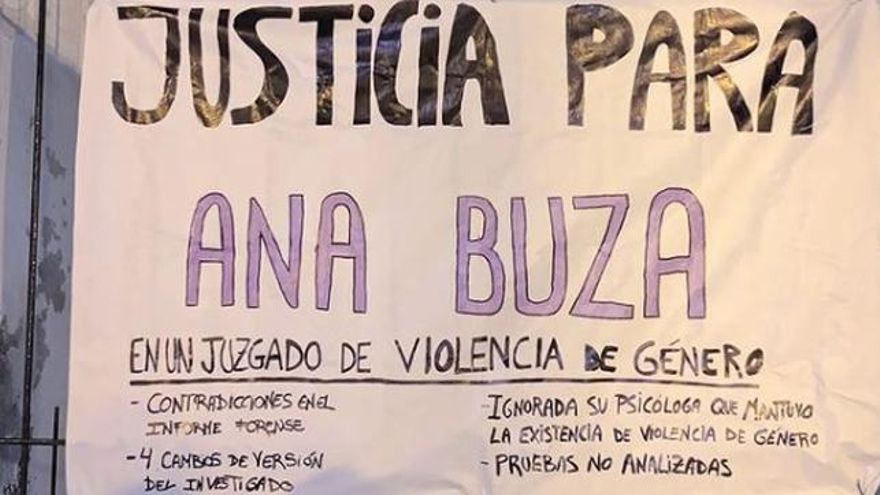 JUSTICIA PARA
ANA BUZA
EN UN JUZGADO DE VIOLENCIA DE GÉNERO
- CONTRADICCIONES EN EL
INFORME FORENSE
- 4 CAMBOS DE VERSIÓN
DEL INVESTIGADO
- IGNORADA SU PSICÓLOGA QUE MANTUVO
LA EXISTENCIA DE VIOLENCIA DE GÉNERO
- PRUEBAS NO ANALIZADAS